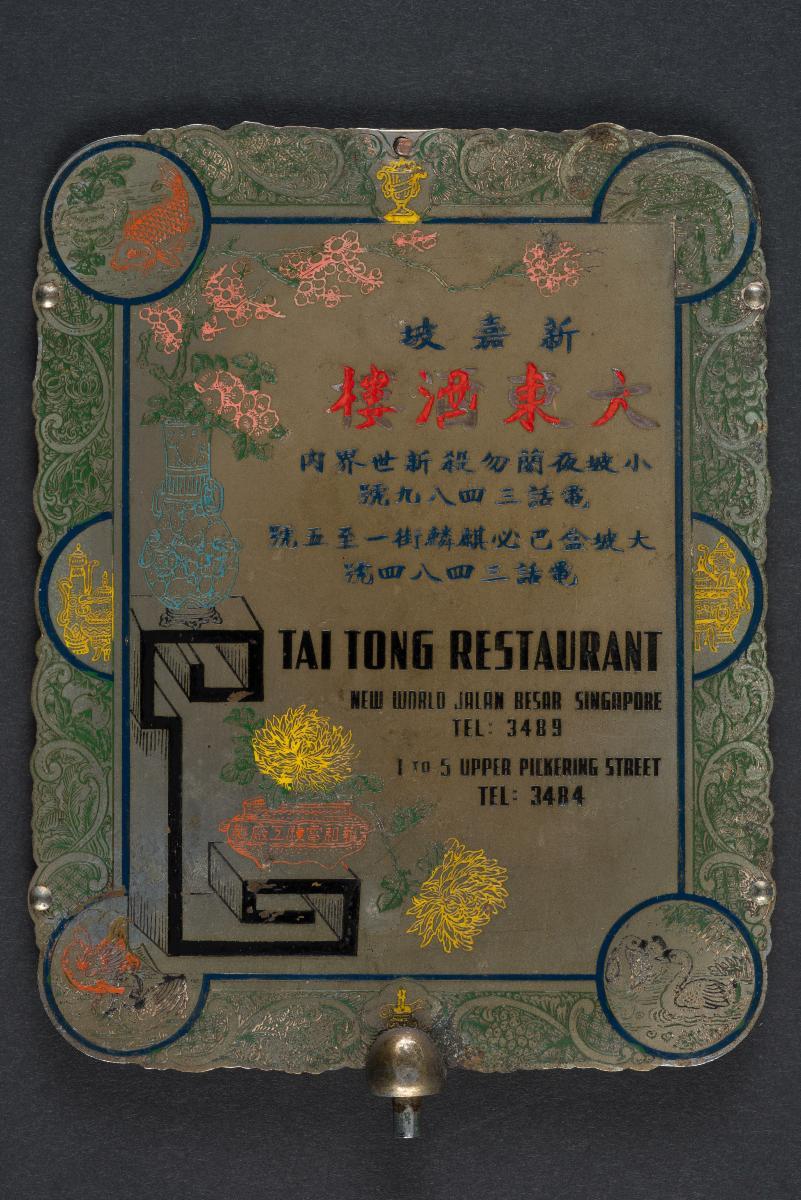 新嘉坡
大東酒樓
小坡夜蘭勿殺新世界內
電話三四八九號
大坡盒巴必麒麟街一至五號
電話三四八四號
TAI TONG RESTAURANT
NEW WORLD JALAN BESAR SINGAPORE
TEL: 3489
1 TO 5 UPPER PICKERING STREET
TEL: 3484